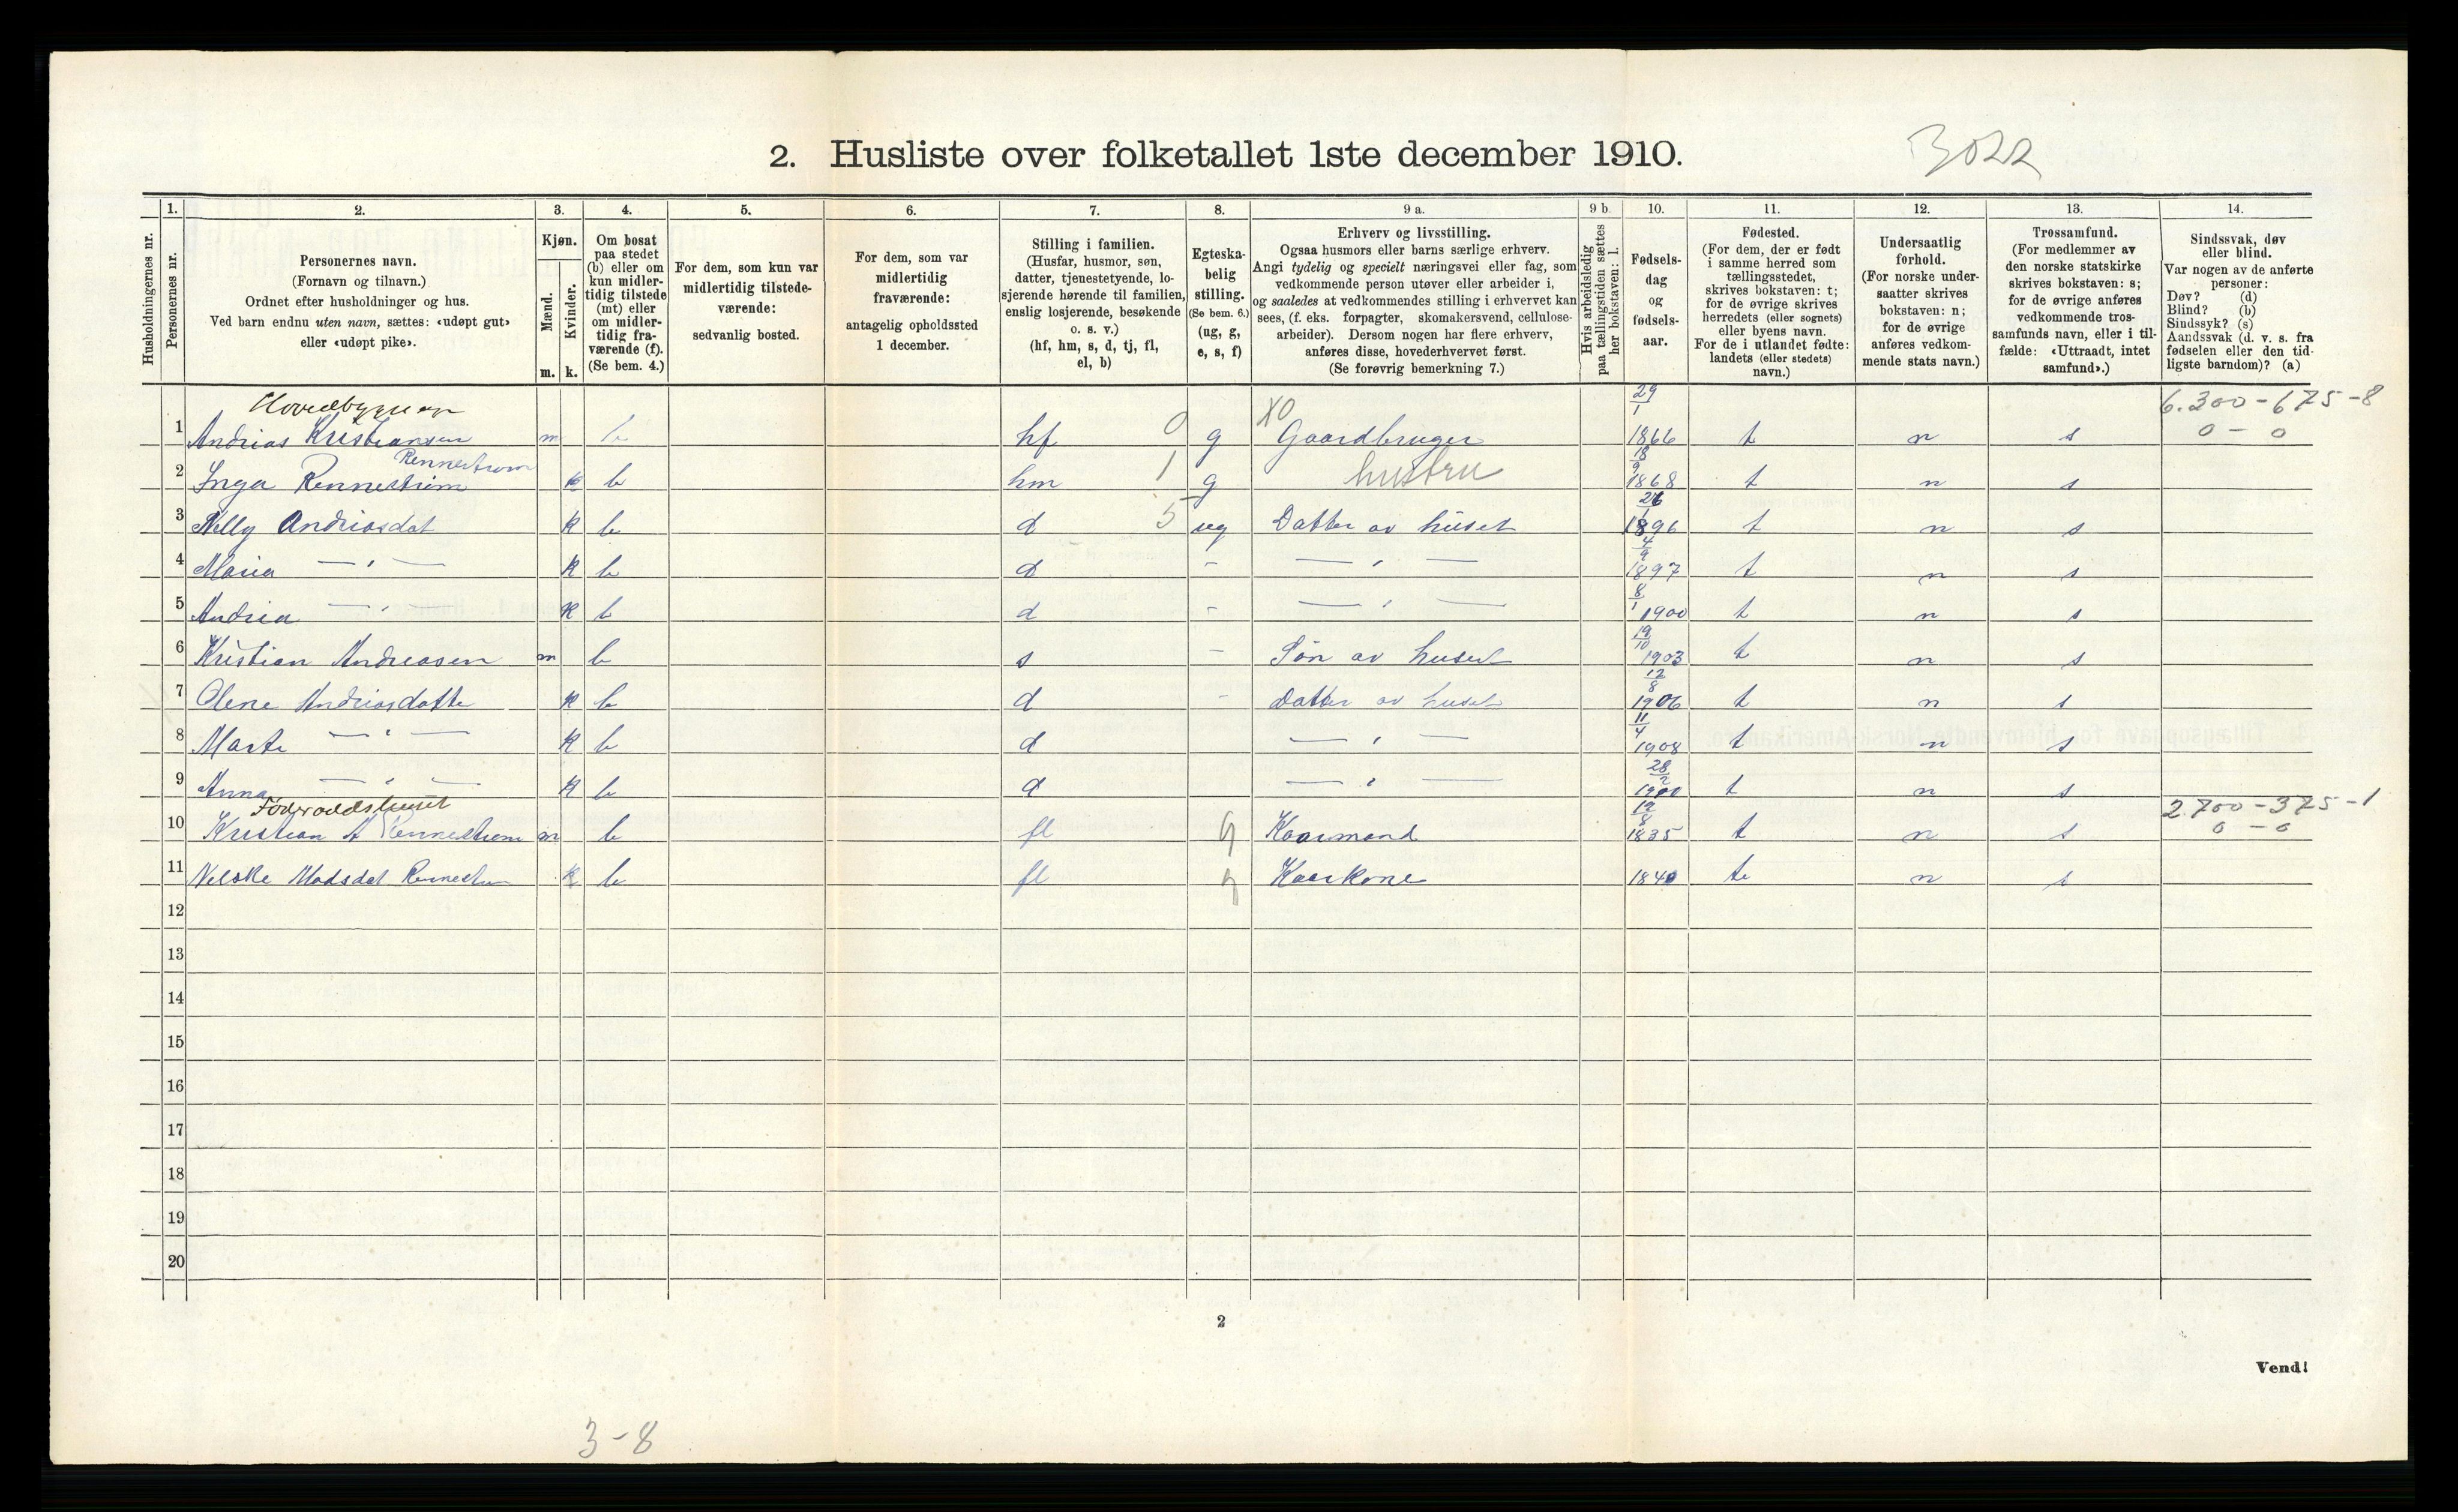 2. Husliste over folketallet 1ste december 1910.
3022
1. 2. 3. 4. 5. 6. 7. 8. 9 a. 9 b. 10. 11. 12. 13. 14.
Husholdningernes nr.
Personernes nr.
Personernes navn.
(Fornavn og tilnavn.)
Ordnet efter husholdninger og hus.
Ved barn endnu uten navn, sættes: «udøpt gut»
eller «udøpt pike».
Kjøn.
Mænd.
Kvinder.
m. k.
Om bosat
paa stedet
(b) eller om
kun midler-
tidig tilstede
(mt) eller
om midler-
tidig fra-
værende (f).
(Se bem. 4.)
For dem, som kun var
midlertidig tilstede-
værende:
sedvanlig bosted.
For dem, som var
midlertidig
fraværende:
antagelig opholdssted
1 december.
Stilling i familien.
(Husfar, husmor, søn,
datter, tjenestetyende, lo-
sjerende hørende til familien,
enslig losjerende, besøkende
o. s. v.)
(hf, hm, s, d, tj, fl,
el, b)
Egteska-
belig
stilling.
(Se bem. 6.)
(ug, g,
e, s, f)
Erhverv og livsstilling.
Ogsaa husmors eller barns særlige erhverv.
Angi tydelig og specielt næringsvei eller fag, som
vedkommende person utøver eller arbeider i,
og saaledes at vedkommendes stilling i erhvervet kan
sees, (f. eks. forpagter, skomakersvend, cellulose-
arbeider). Dersom nogen har flere erhverv,
anføres disse, hovederhvervet først.
(Se forøvrig bemerkning 7.)
Hvis arbeidsledig
paa tællingstiden sættes
her bokstaven: l.
Fødsels-
dag
og
fødsels-
aar.
Fødested.
(For dem, der er født
i samme herred som
tællingsstedet,
skrives bokstaven: t;
for de øvrige skrives
herredets (eller sognets)
eller byens navn.
For de i utlandet fødte:
landets (eller stedets)
navn.)
Undersaatlig
forhold.
(For norske under-
saatter skrives
bokstaven: n;
for de øvrige
anføres vedkom-
mende stats navn.)
Trossamfund.
(For medlemmer av
den norske statskirke
skrives bokstaven: s;
for de øvrige anføres
vedkommende tros-
samfunds navn, eller i til-
fælde: «Uttraadt, intet
samfund».)
Sindssvak, døv
eller blind.
Var nogen av de anførte
personer:
Døv? (d)
Blind? (b)
Sindssyk? (s)
Aandssvak (d. v. s. fra
fødselen eller den tid-
ligste barndom)? (a)
29/1 6.300-675-8
1 Andrias Kristiansen m b hf 0 g X0 Gaardbruger 1866 t n s 0 - 0
Rennestrøm 18/9
2 Inga Rennestrøm k b hm 1 g hustru 1868 t n s
3 Nelly Andriasdat k b d 5 ug Datter av huset 1896 t n s
4/9
4 Maria — " — k b d - — " — 1897 t n s
8/1
5 Andrea — " — k b d - — " — 1900 t n s
19/10
6 Kristian Andreasen m b s - Søn av huset 1903 t n s
12/8
7 Olene Andriasdatte k b d - Datter av huset 1906 t n s
11/4
8 Marta — " — k b d — " — 1908 t n s
28/2
9 Anna — " — k b d — " — t n s
Føderaadshuset 19/8 2.700-375-1
10 Kristian A Rennestrøm m b fl g Kaarmand 1835 t n s 0 - 0
11 Madsdat k b fl g Kaarkone 1840 t n s
12
13
14
15
16
17
18
19
20
2
Vend!
3-8